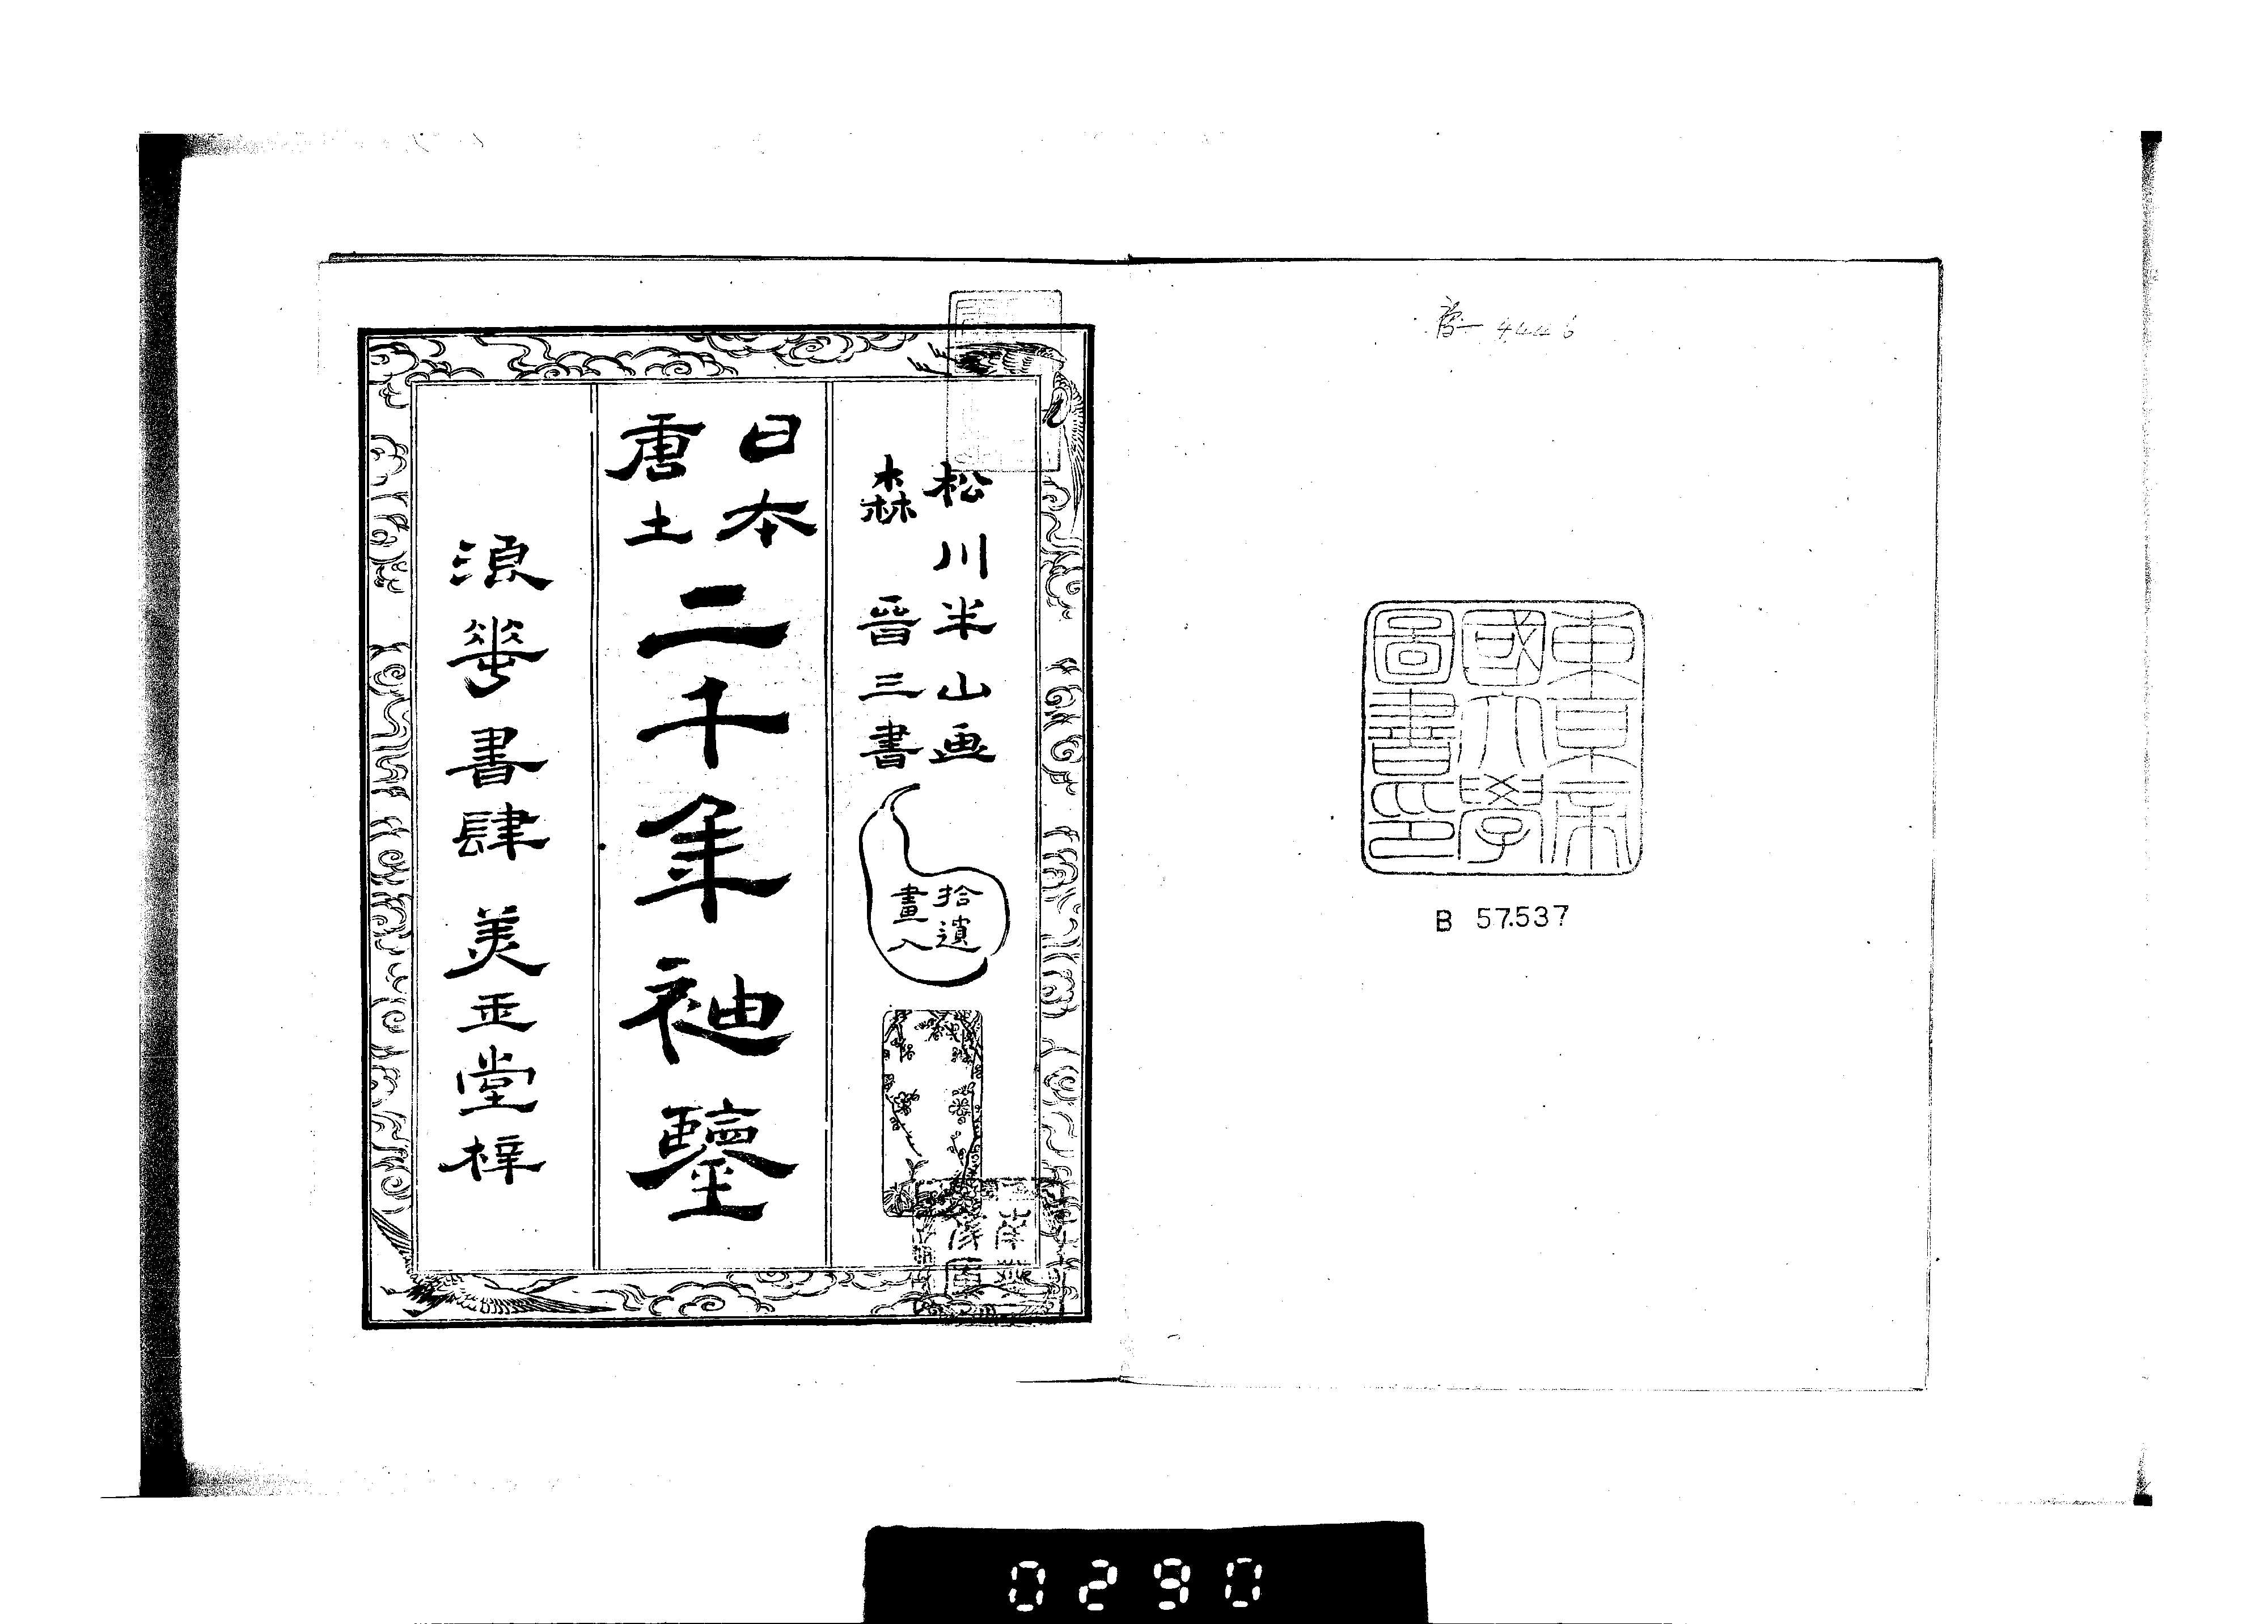 4446
東京帝
國大學
圖書印
B 57.537
松川半山画
森 晉三書
拾遺
畫入
日本
唐土
二千年袖鑒
浪華書肆 美玉堂梓
南葵
0290